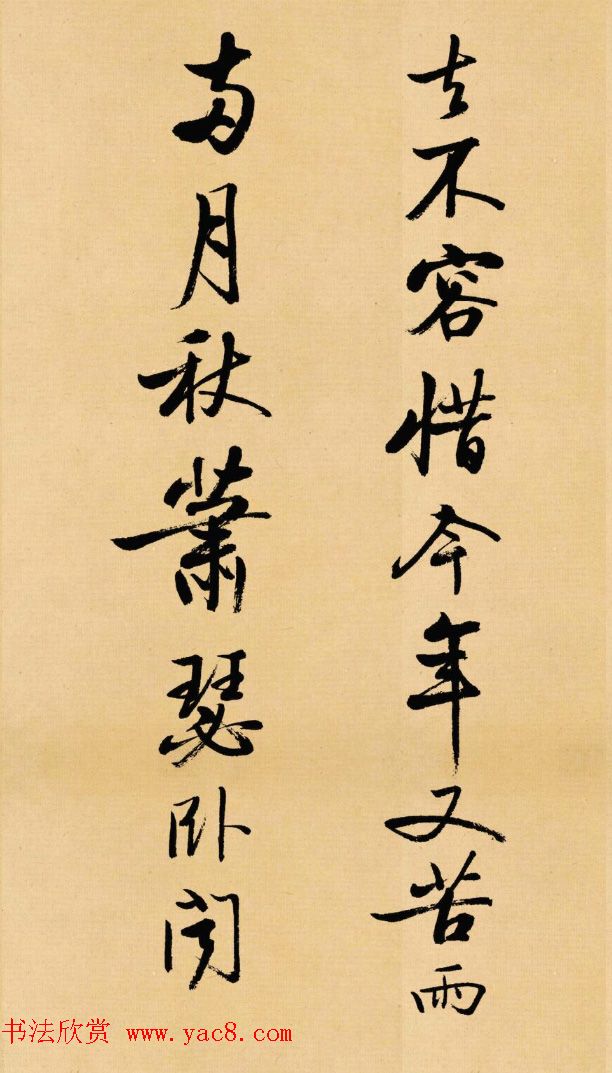 去不容惜今年又苦雨
兩月秋蕭瑟卧闻
书法欣赏 www.yac8.com